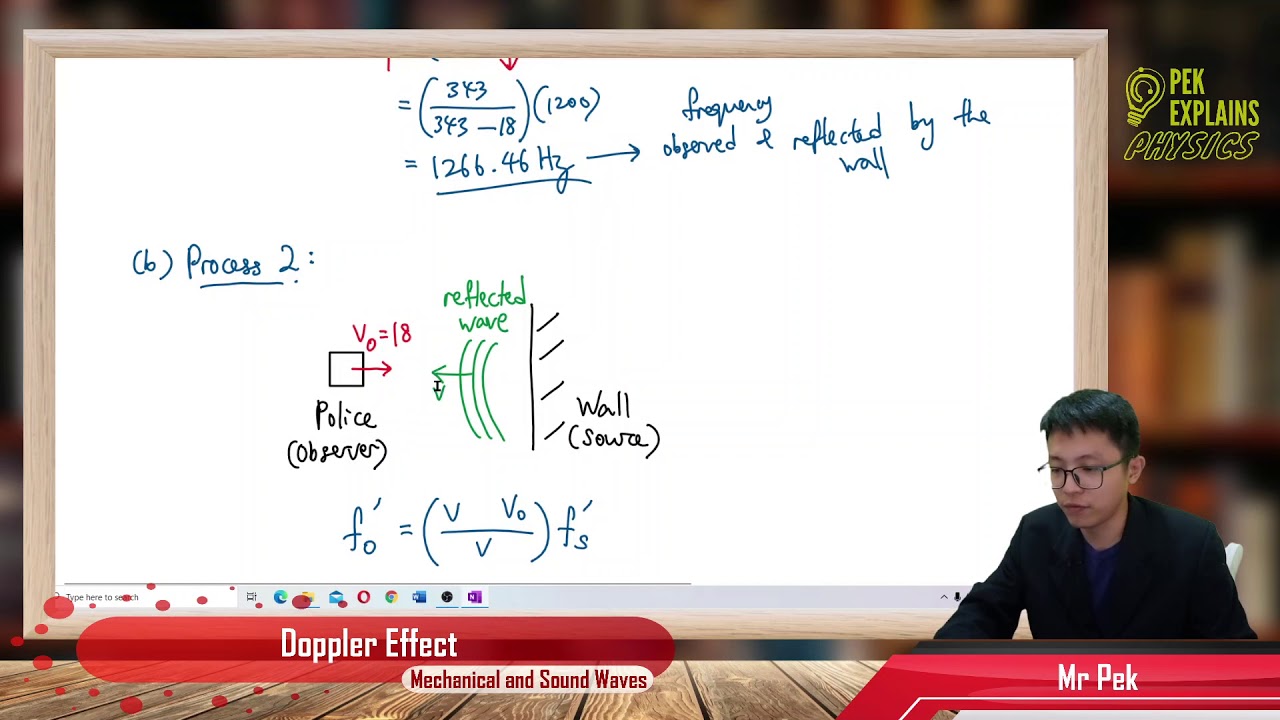 = (343 / 343 - 18)(1200)
= 1266.46 Hz → frequency observed & reflected by the wall
(b) Process 2:
reflected
wave
V₀=18
V
Police
(Observer)
Wall
(Source)
f₀′ = (V V₀ / V) fₛ′
Type here to search
Doppler Effect
Mechanical and Sound Waves
Mr Pek
PEK
EXPLAINS
PHYSICS